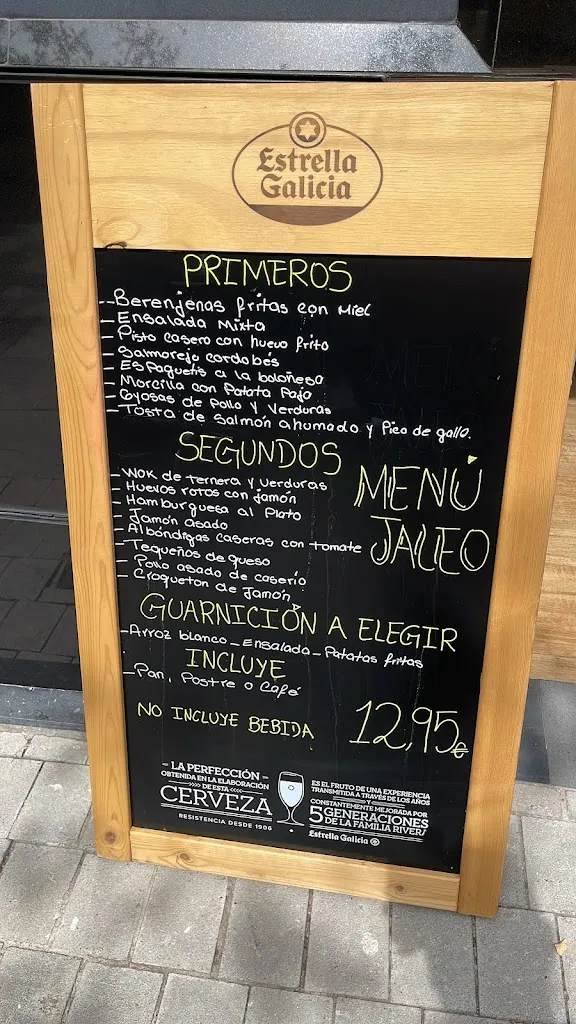 Estrella
Galicia
PRIMEROS
- Berenjenas fritas con Miel
- Ensalada Mixta
- Pisto casero con huevo frito
- Salmorejo cordobés
- Espaguetis a la boloñesa
- Morcilla con Patata Paja
- Gyosas de Pollo y Verduras
- Tosta de Salmón ahumado y Pico de gallo.
SEGUNDOS
- Wok de ternera y verduras
- Huevos rotos con jamón
- Hamburguesa al Plato
- Jamón asado
- Albóndigas caseras con tomate
- Tequeños de queso
- Pollo asado de caserio
- Croqueton de Jamón
MENÚ
JALEO
GUARNICIÓN A ELEGIR
- Arroz blanco - Ensalada - Patatas fritas
INCLUYE
- Pan, Postre o Café
NO INCLUYE BEBIDA
12,95€
- LA PERFECCIÓN -
OBTENIDA EN LA ELABORACIÓN
DE ESTA
CERVEZA
RESISTENCIA DESDE 1906
ES EL FRUTO DE UNA EXPERIENCIA
TRANSMITIDA A TRAVÉS DE LOS AÑOS
Y
CONSTANTEMENTE MEJORADA POR
5 GENERACIONES
DE LA FAMILIA RIVERA
Estrella Galicia